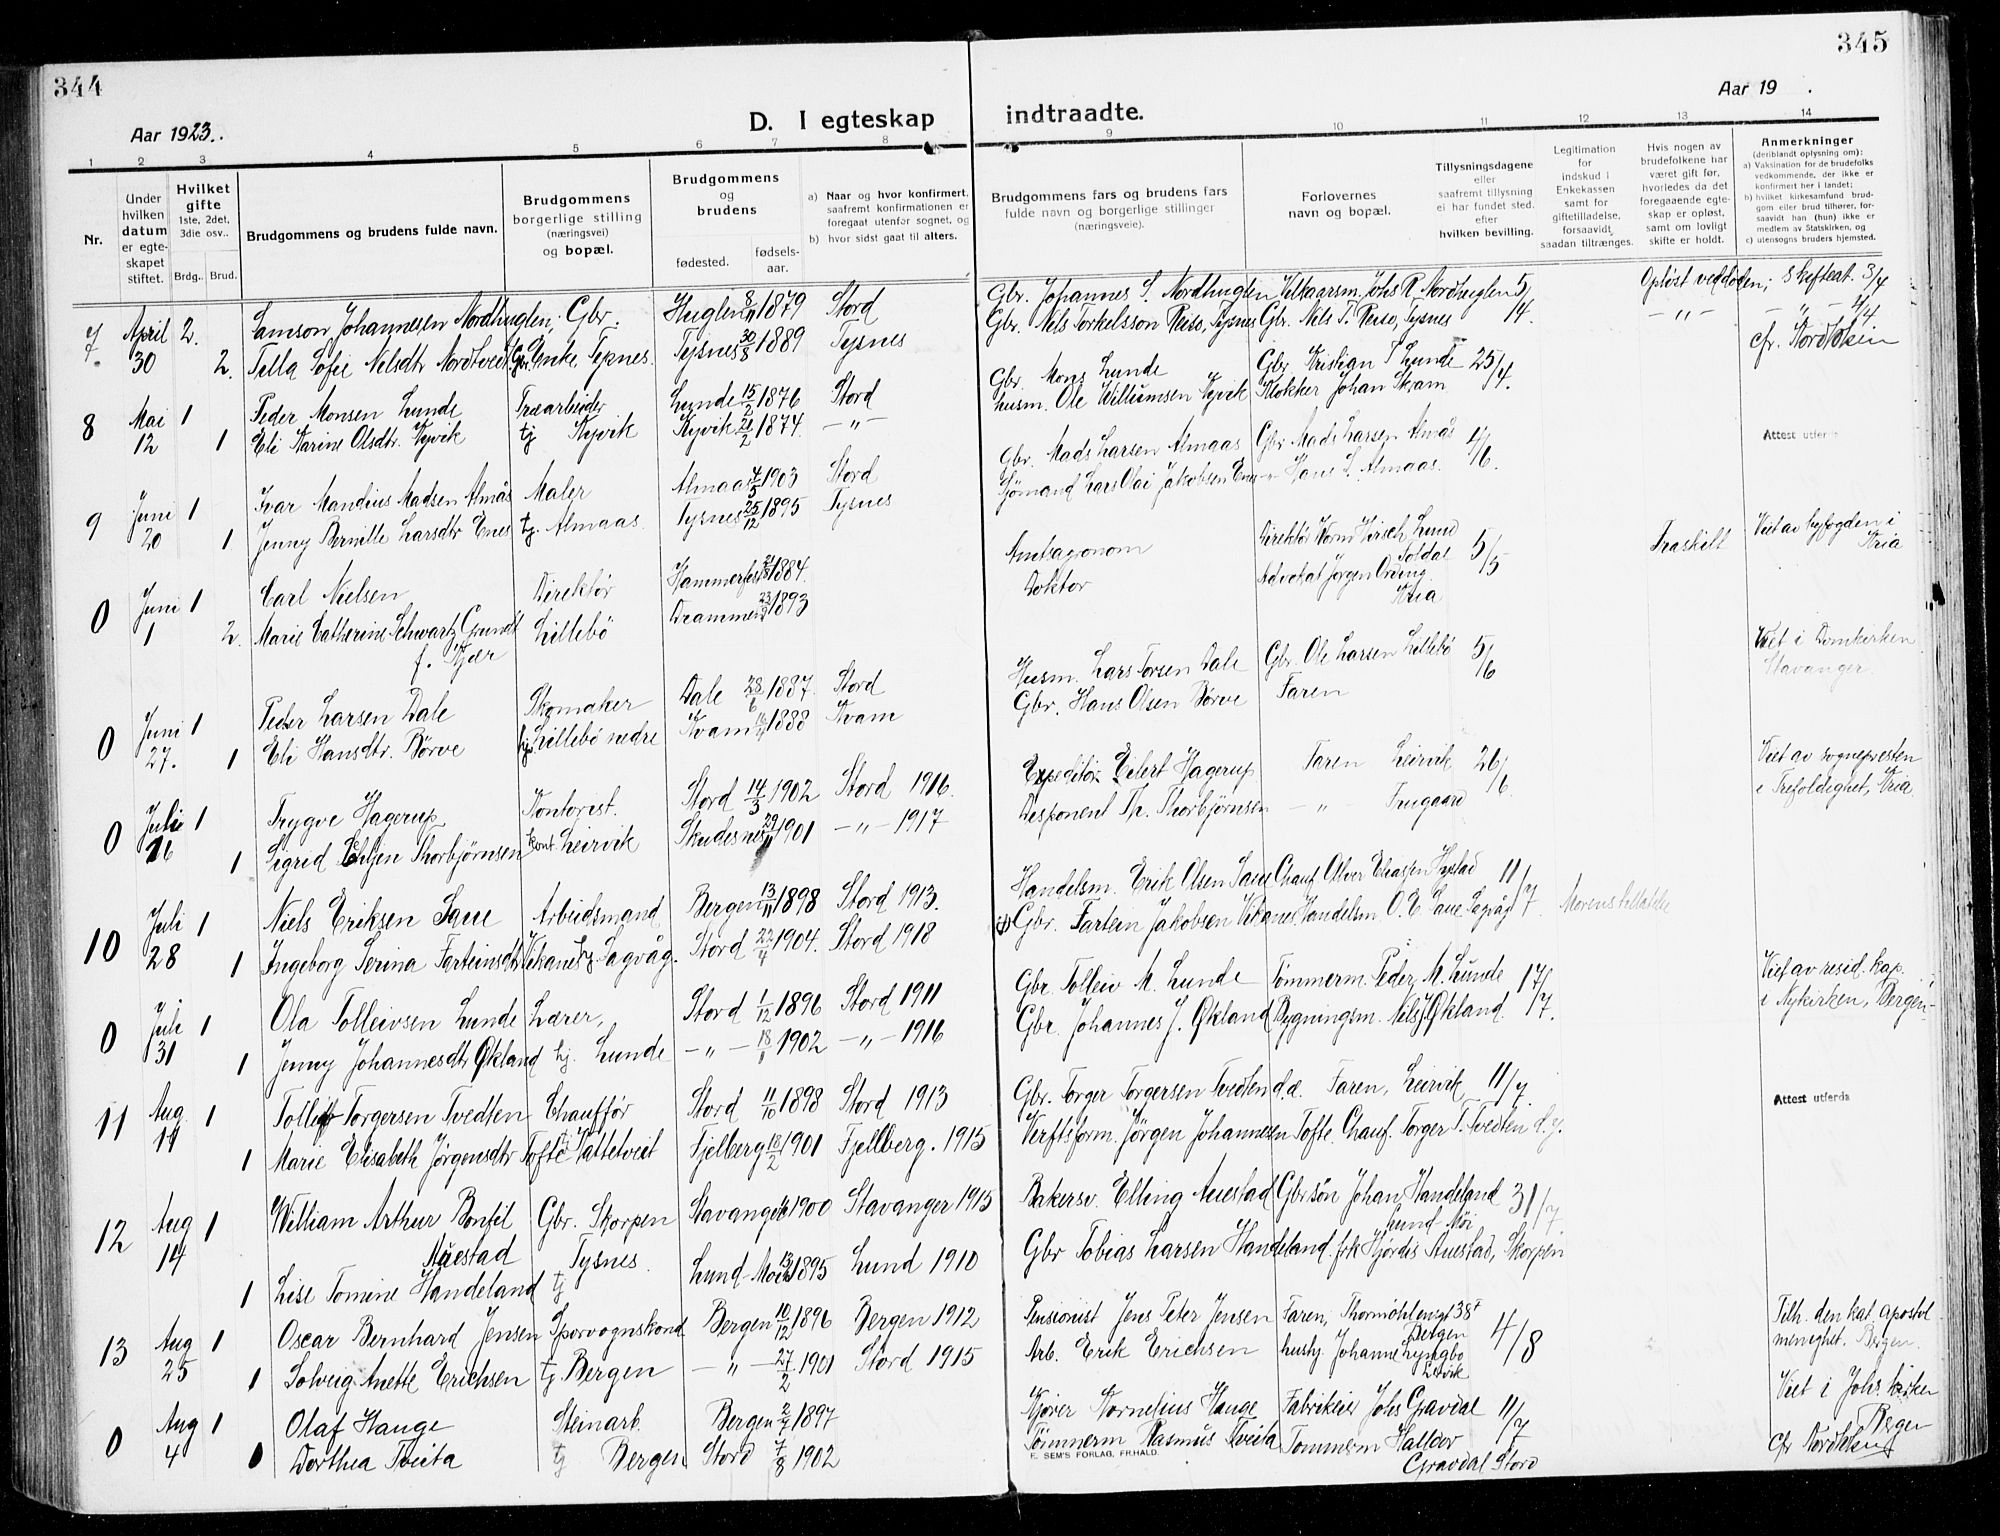 344
345
Aar 1923.
Aar 19 .
D. I egteskap indtraadte.
1 2 3 4 5 6 7 8 9 10 11 12 13 14
Nr.
Under hvilken datum er egte-skapet stiftet.
Hvilket gifte
1ste, 2det, 3die osv..
Brdg.. Brud.
Brudgommens og brudens fulde navn.
Brudgommens borgerlige stilling (næringsvei) og bopæl.
Brudgommens og brudens
fødested. fødsels-aar.
a) Naar og hvor konfirmert, saafremt konfirmationen er foregaat utenfor sognet, og
b) hvor sidst gaat til alters.
Brudgommens fars og brudens fars fulde navn og borgerlige stillinger (næringsveie).
Forlovernes navn og bopæl.
Tillysningsdagene eller saafremt tillysning ei har fundet sted, efter hvilken bevilling.
Legitimation for indskud i Enkekassen samt for giftetilladelse, forsaavidt saadan tiltrænges.
Hvis nogen av brudefolkene har været gift før, hvorledes da det foregaaende egte-skap er opløst, samt om lovligt skifte er holdt.
Anmerkninger
(deriblandt oplysning om):
a) Vaksination for de brudefolks vedkommende, der ikke er konfirmert her i landet;
b) hvilket kirkesamfund brud-gom eller brud tilhører, for-saavidt han (hun) ikke er medlem av Statskirken, og
c) utensogns bruders hjemsted.
7 April 2. Samson Johannesen Nordhuglen, Gbr. Huglen 1879 Stord Gbr. Johannes S. Nordhuglen Velkaarsm. Johs R. Nordhuglen 5/ Opløst ved døden; skifteat. 3/4
30 2. Tilla Sofie Nelsdtr Nordtveit Gbr. Enke, Tysnes. Tysnes 30/8 1889 Tysnes Gbr. Nels Torkelsson Reiso, Tysnes Gbr. Nils T. Reiso, Tysnes 14. — „ — — „ — 4/4
cfr. Nordtvein
8 Mai 1 Peder Monsen Lunde Træarbeider Lunde 15/2 1876 Stord Gbr. Mons Lunde Gbr. Kristian P Lunde 25/4.
12 1 Eli Karine Olsdtr. Kyvik tj Kyvik Kyvik 21/2 1874. — „ — husm. Ole Willumsen Kyvik Klokker Johan Skram
9 Juni 1 Ivar Mandius Madsen Almås Maler Almaas 4/5 1903 Stord Gbr. Mads Larsen Almaas Gbr Mads Larsen Almås 4/6. Attest utferda
20 1 Jenny Bernille Larsdtr Enes tj. Almaas. Tysnes 25/12 1895 Tysnes Sjømand Lars Olai Jakobsen Enes „ Hans L. Almaas.
0 Juni 1 Carl Nielsen Direktør Hammerfest 1884. Amtsagronom Direktør Worm Hirsch Lund Soldal 5/5 Fraskilt Viet av byfogden i Kria
1 2. Marie Catherine Schwartz Grundt f. Kjær Lillebö Drammen 1893 Doktor Advokat Jørgen Ording. Kria
0 Juni 1 Peder Larsen Dale Skomaker Dale 28/6 1887. Stord Husm. Lars Torsen Dale Gbr. Ole Larsen Lillebö 5/6 Viet i Domkirken Stavanger.
27. 1 Eli Hansdtr. Börve Lillebö nedre Kvam 1888 Kvam Gbr. Hans Olsen Börve Faren
0 Juli 1 Trygve Hagerup Kontorist. Stord 14/5 1902 Stord 1916. Expeditør Eilert Hagerup Faren Leirvik 26/6 Viet av sognepresten i Trefoldighet, Kria
16 1 Sigrid Thorbjørnsen kont. Leirvik Skudesnes 29/11 1901 — „ — 1917 Disponent Th. Thorbjørnsen — „ — Frugaard
10 Juli 1 Niels Eriksen Saue Arbeidsmand Bergen 13/11 1898 Stord 1913. Handelsm. Erik Olsen Saue Chauf Olver Eliasen Hystad 11/7
28 1 Ingeborg Serina Farteinsdtr Vikanes tj Sagvåg. Stord 22/4 1904. Stord 1918 Gbr. Fartein Jakobsen Vikanes Handelsm. O. E. Saue Sagvåg Morens tillatelse
0 Juli 1 Ola Tolleivsen Lunde Lærer, Stord 1/12 1896 Stord 1911 Gbr. Tolleiv M. Lunde Tømmerm. Peder M. Lunde 17/7. Viet av resid. kap. i Nykirken, Bergen
31 1 Jenny Johannesdtr Økland hj. Lunde — „ — 18/1 1902 — „ — 1916 Gbr. Johannes J. Økland Bygningsm. Nils J Økland.
11 Aug 1 Torgersen Tvedten Chauffør Stord 11/10 1898 Stord 1913 Gbr. Torger Torgersen Tvedten d.e. Faren, Leirvik 11/7 Attest utferda
1 Marie Elisabeth Jørgensdtr Tofte Vattetveit Fjelberg 18/2 1901 Fjelberg. 1915 Verftsform. Jørgen Johannesen Tofte. Chauf. Torger T. Tvedten d.y.
12 Aug 1 William Arthur Bonfil Auestad Gbr. Skorpen Tysnes. Stavanger 1900 Stavanger 1915 Bakersv. Elling Auestad Gbrsøn Johan Handeland Lund Möi 31/7
14 1 Lise Tomine Handeland tj Lund-Moi 1895 Lund 1910 Gbr Tobias Larsen Handeland. frk Hjørdis Auestad, Skorpen
13 Aug 1 Oscar Bernhard Jensen Sporvognskond. Bergen 10/12 1896 Bergen 1912 Pensionist Jens Peter Jensen Faren, Thormøhlensgt 38 Bergen 4/8 Tilh. den kat. apostol. menighet. Bergen.
25 1 Solveig Anette Erichsen tj. Bergen — „ — 27/2 1901 Stord 1915 Arb. Erik Erichsen hushj. Johanne Lyngbø Leirvik
0 Aug 1 Olaf Hauge Steinarb. Bergen 2/7 1897 Kjører Kornelius Hauge Fabrikeier Johs Gravdal 11/7 Viet i Johs. kirken Bergen
4 Dorthea Tveita tj Bergen Stord 7/8 1902 Tömmerm Rasmus Tveita Tømmerm Halldor Gravdal Stord
E. SEM'S FORLAG, FR.HALD.